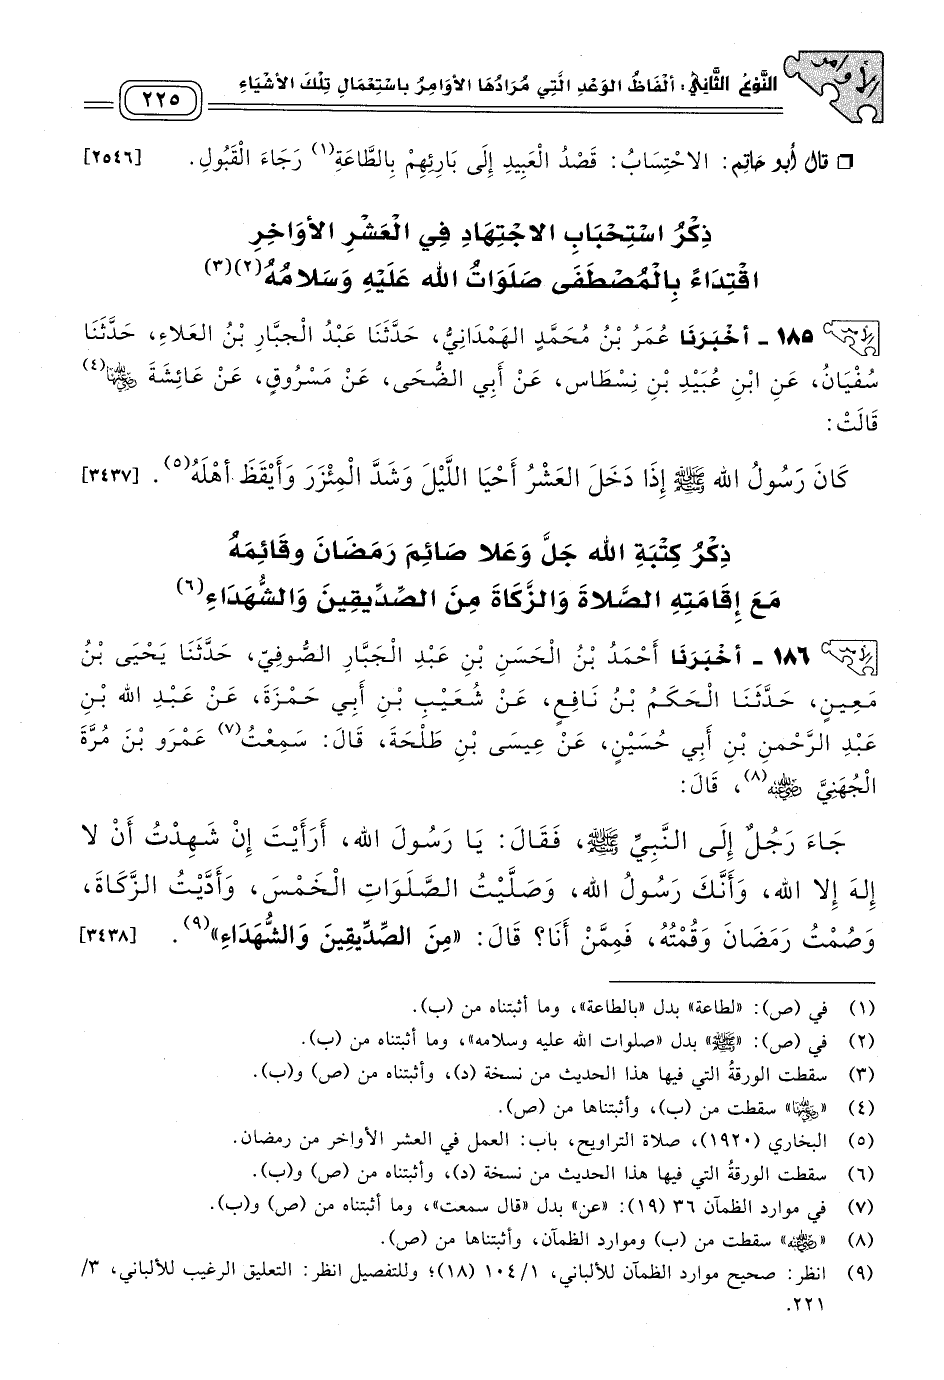 الأوامر
النَّوْعُ الثَّانِيْ: أَلْفَاظُ الوَعْدِ الَّتِي مُرَادُهَا الأَوَامِرُ بِاسْتِعْمَالِ تِلْكَ الأَشْيَاءِ
٢٢٥
❒ قال أبو حاتم: الاحْتِسَابُ: قَصْدُ الْعَبِيدِ إِلَى بَارِئِهِمْ بِالطَّاعَةِ(١) رَجَاءَ الْقَبُولِ. [٢٥٤٦]
ذِكْرُ اسْتِحْبَابِ الاجْتِهَادِ فِي الْعَشْرِ الأَوَاخِرِ
اقْتِدَاءً بِالْمُصْطَفَى صَلَوَاتُ الله عَلَيْهِ وَسَلامُهُ(٢)(٣)
١٨٥ - أَخْبَرَنَا عُمَرُ بْنُ مُحَمَّدٍ الهَمْدَانِيُّ، حَدَّثَنَا عَبْدُ الْجبَّارِ بْنُ العَلاءِ، حَدَّثَنَا
سُفْيَانُ، عَنِ ابْنِ عُبَيْدِ بْنِ نِسْطَاس، عَنْ أَبِي الضُّحَى، عَنْ مَسْرُوقٍ، عَنْ عَائِشَةَ رضي الله عنها(٤)
قَالَتْ:
كَانَ رَسُولُ الله ﷺ إِذَا دَخَلَ العَشْرُ أَحْيَا اللَّيْلَ وَشَدَّ الْمِئْزَرَ وَأَيْقَظَ أَهْلَهُ(٥). [٣٤٣٧]
ذِكْرُ كِتْبَةِ الله جَلَّ وَعَلا صَائِمَ رَمَضَانَ وَقَائِمَهُ
مَعَ إِقَامَتِهِ الصَّلاةَ وَالزَّكَاةَ مِنَ الصِّدِّيقِينَ وَالشُّهَدَاءِ(٦)
١٨٦ - أَخْبَرَنَا أَحْمَدُ بْنُ الْحَسَنِ بْنِ عَبْدِ الْجَبَّارِ الصُّوفِيّ، حَدَّثَنَا يَحْيَى بْنُ
مَعِينٍ، حَدَّثَنَا الْحَكَمُ بْنُ نَافِعٍ، عَنْ شُعَيْبِ بْنِ أَبِي حَمْزَةَ، عَنْ عَبْدِ الله بْنِ
عَبْدِ الرَّحْمنِ بْنِ أَبِي حُسَيْنٍ، عَنْ عِيسَى بْنِ طَلْحَةَ، قَالَ: سَمِعْتُ(٧) عَمْرَو بْنَ مُرَّةَ
الْجُهَنِيَّ رضي الله عنه(٨)، قَالَ:
جَاءَ رَجُلٌ إِلَى النَّبِيِّ ﷺ، فَقَالَ: يَا رَسُولَ الله، أَرَأَيْتَ إِنْ شَهِدْتُ أَنْ لا
إِلهَ إِلا الله، وَأَنَّكَ رَسُولُ الله، وَصَلَّيْتُ الصَّلَوَاتِ الْخَمْسَ، وَأَدَّيْتُ الزَّكَاةَ،
وَصُمْتُ رَمَضَانَ وَقُمْتُهُ، فَمِمَّنْ أَنَا؟ قَالَ: «مِنَ الصِّدِّيقِينَ وَالشُّهَدَاءِ»(٩). [٣٤٣٨]
(١) في (ص): «لطاعة» بدل «بالطاعة»، وما أثبتناه من (ب).
(٢) في (ص): «ﷺ» بدل «صلوات الله عليه وسلامه»، وما أثبتناه من (ب).
(٣) سقطت الورقةُ التي فيها هذا الحديث من نسخة (د)، وأثبتناه من (ص) و(ب).
(٤) «رضي الله عنها» سقطت من (ب)، وأثبتناها من (ص).
(٥) البخاري (١٩٢٠)، صلاة التراويح، باب: العمل في العشر الأواخر من رمضان.
(٦) سقطت الورقةُ التي فيها هذا الحديث من نسخة (د)، وأثبتناه من (ص) و(ب).
(٧) في موارد الظمآن ٣٦ (١٩): «عن» بدل «قال سمعت»، وما أثبتناه من (ص) و(ب).
(٨) «رضي الله عنه» سقطت من (ب) وموارد الظمآن، وأثبتناها من (ص).
(٩) انظر: صحيح موارد الظمآن للألباني، ١/ ١٠٤ (١٨)؛ وللتفصيل انظر: التعليق الرغيب للألباني، ٣/
٢٢١.